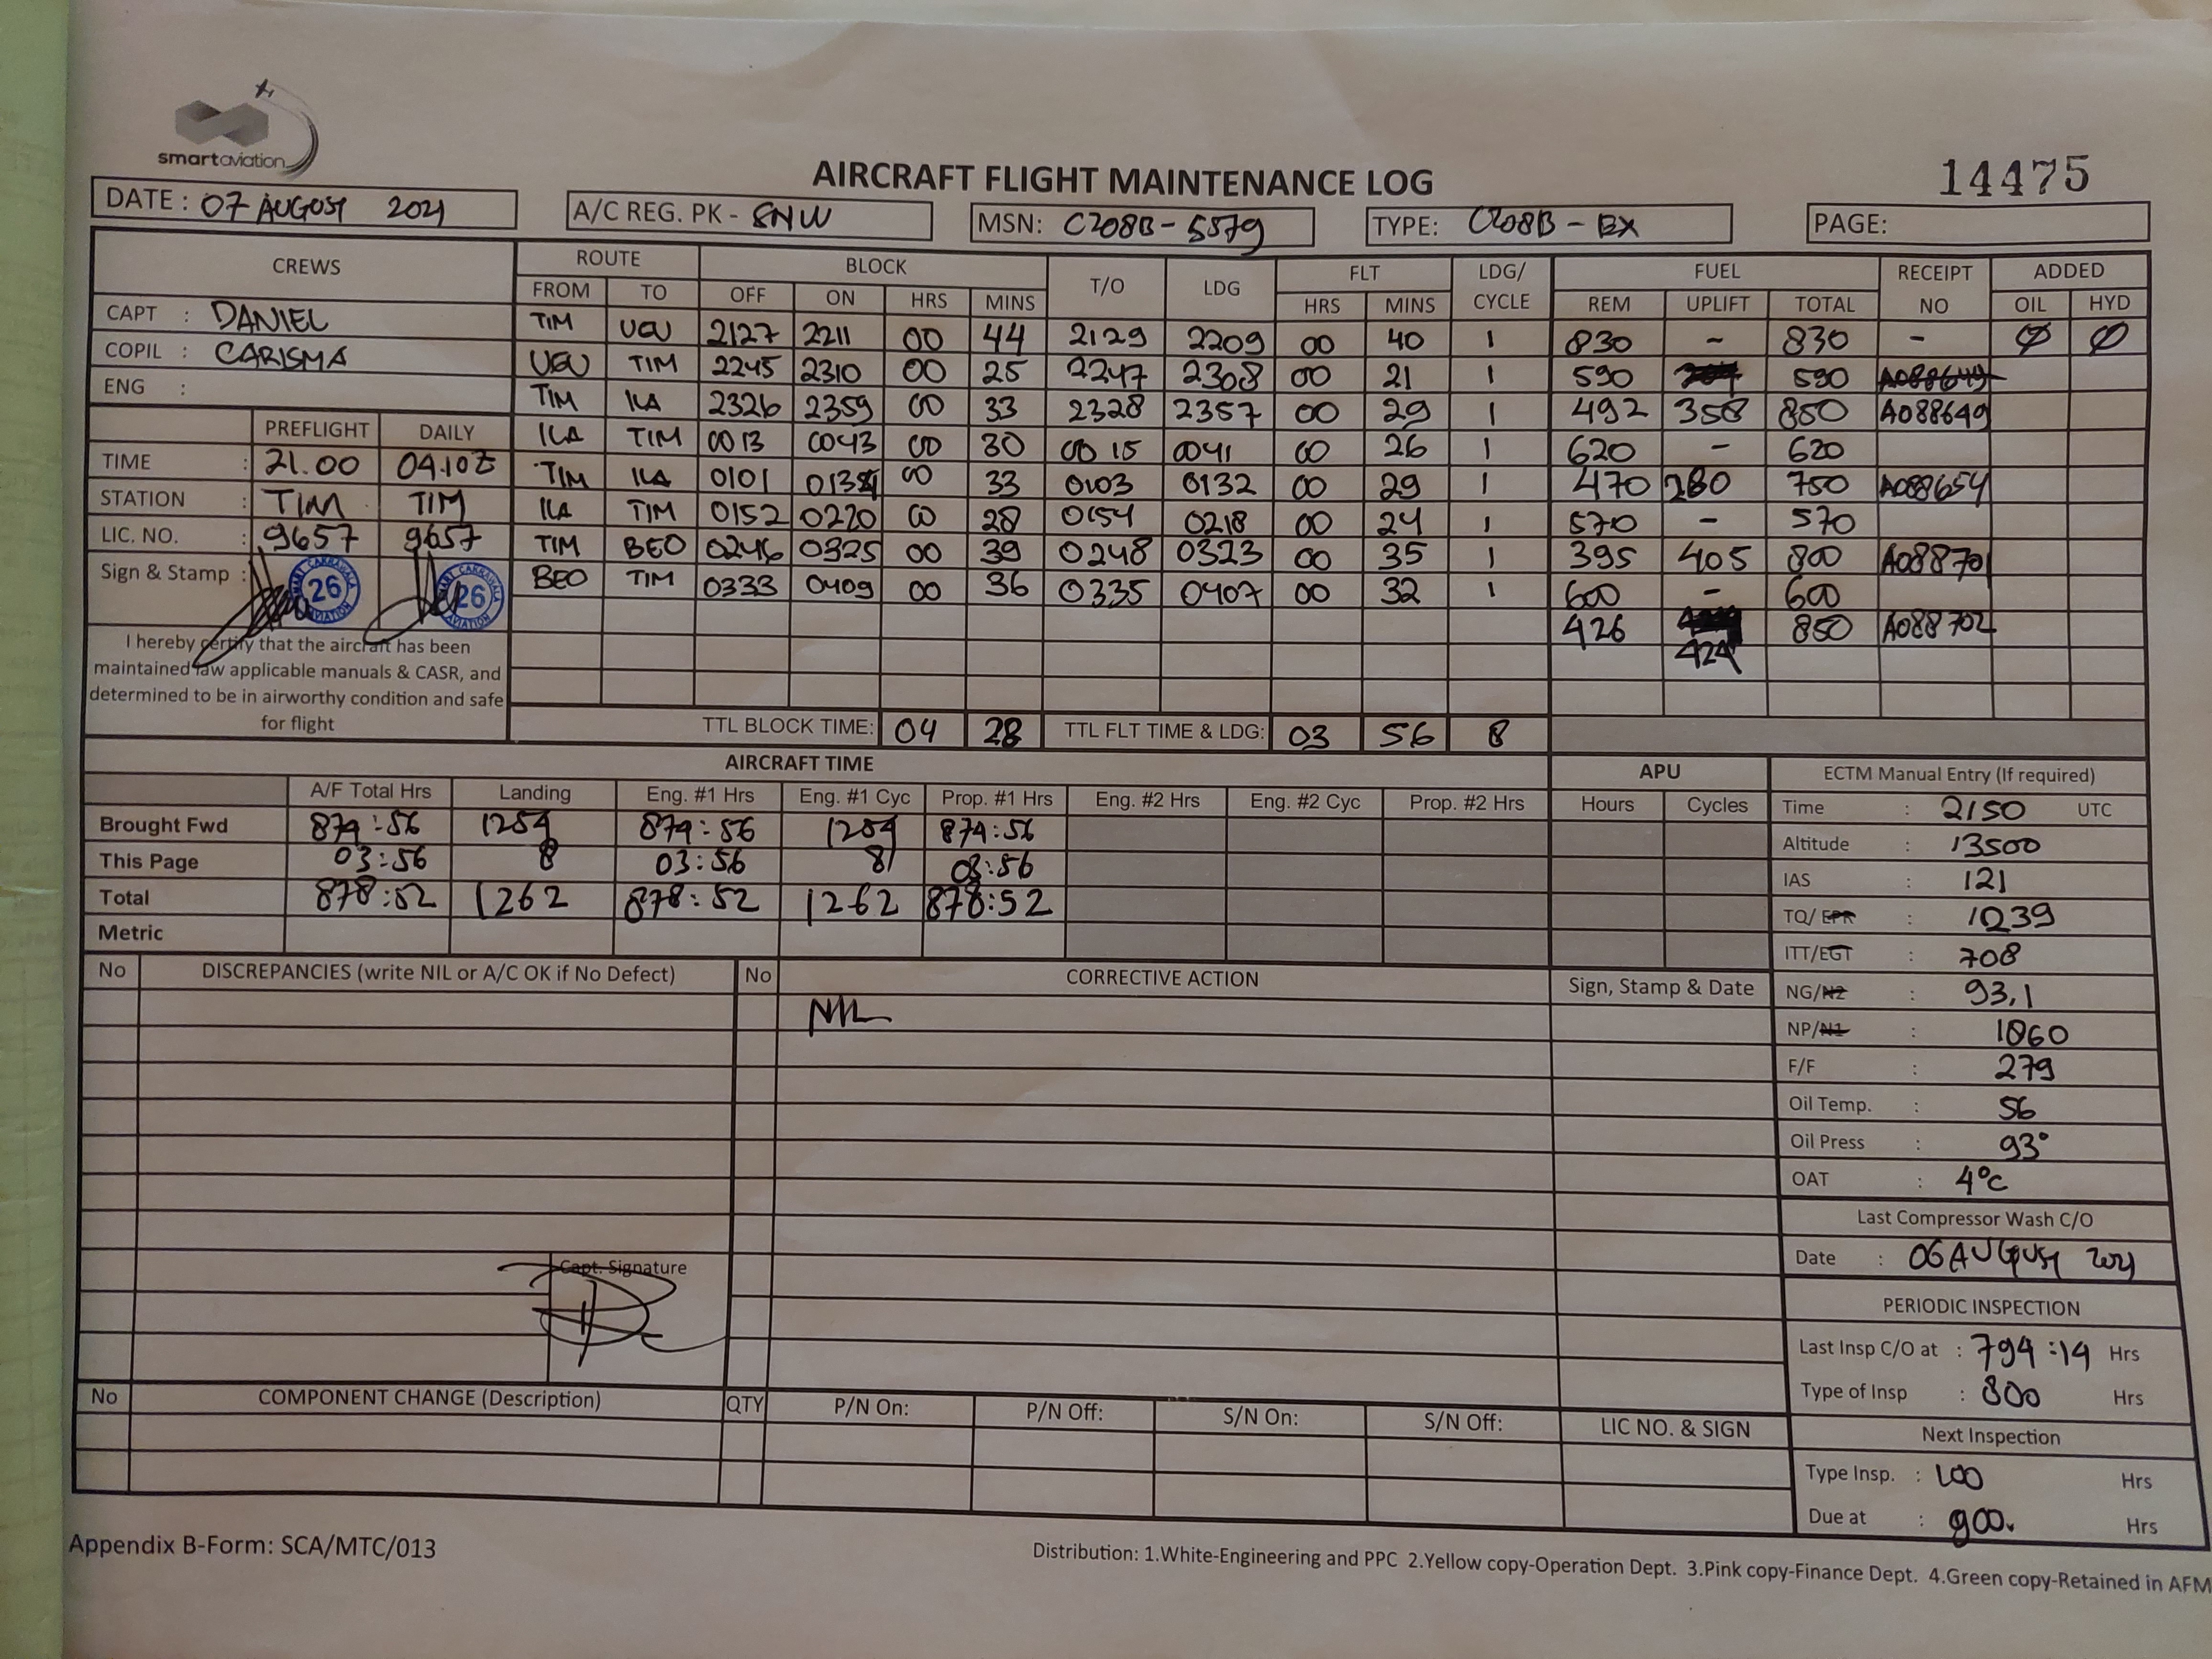 smartaviation
AIRCRAFT FLIGHT MAINTENANCE LOG
14475
DATE : 07 AUGUST 2021
A/C REG. PK - SNW
MSN: C208B - 5579
TYPE: C208B - EX
PAGE:
CREWS ROUTE BLOCK T/O LDG FLT LDG/ CYCLE FUEL RECEIPT NO ADDED
FROM TO OFF ON HRS MINS HRS MINS REM UPLIFT TOTAL OIL HYD
CAPT : DANIEL
COPIL : CARISMA
ENG :
TIM UGU 2127 2211 00 44 2129 2209 00 40 1 830 - 830 - Ø Ø
UGU TIM 2245 2310 00 25 2247 2308 00 21 1 590 590 A088649
TIM ILA 2326 2359 00 33 2328 2357 00 29 1 492 358 850 A088649
ILA TIM 0013 0043 00 30 0015 0041 00 26 1 620 - 620
TIM ILA 0101 0134 00 33 0103 0132 00 29 1 470 280 750 A088654
ILA TIM 0152 0220 00 28 0154 0218 00 24 1 570 - 570
TIM BEO 0246 0325 00 39 0248 0323 00 35 1 395 405 800 A088701
BEO TIM 0333 0409 00 36 0335 0407 00 32 1 600 - 600
426 424 850 A088702
PREFLIGHT DAILY
TIME : 21.00 04.10Z
STATION : TIM TIM
LIC. NO. : 9657 9657
Sign & Stamp : 26 26
I hereby certify that the aircraft has been
maintained law applicable manuals & CASR, and
determined to be in airworthy condition and safe
for flight
TTL BLOCK TIME: 04 28 TTL FLT TIME & LDG: 03 56 8
AIRCRAFT TIME
A/F Total Hrs Landing Eng. #1 Hrs Eng. #1 Cyc Prop. #1 Hrs Eng. #2 Hrs Eng. #2 Cyc Prop. #2 Hrs
Brought Fwd 874:56 1254 874:56 1254 874:56
This Page 03:56 8 03:56 8 03:56
Total 878:52 1262 878:52 1262 878:52
Metric
APU
Hours Cycles
ECTM Manual Entry (If required)
Time : 2150 UTC
Altitude : 13500
IAS : 121
TQ/ EPR : 1239
ITT/EGT : 708
NG/N2 : 93,1
NP/N1 : 1860
F/F : 279
Oil Temp. : 56
Oil Press : 93°
OAT : 4°C
Last Compressor Wash C/O
Date : 06 AUGUST 2021
PERIODIC INSPECTION
Last Insp C/O at : 794:14 Hrs
Type of Insp : 800 Hrs
Next Inspection
Type Insp. : 100 Hrs
Due at : 900. Hrs
No DISCREPANCIES (write NIL or A/C OK if No Defect) No CORRECTIVE ACTION Sign, Stamp & Date
NIL
Capt. Signature
No COMPONENT CHANGE (Description) QTY P/N On: P/N Off: S/N On: S/N Off: LIC NO. & SIGN
Appendix B-Form: SCA/MTC/013
Distribution: 1.White-Engineering and PPC 2.Yellow copy-Operation Dept. 3.Pink copy-Finance Dept. 4.Green copy-Retained in AFM